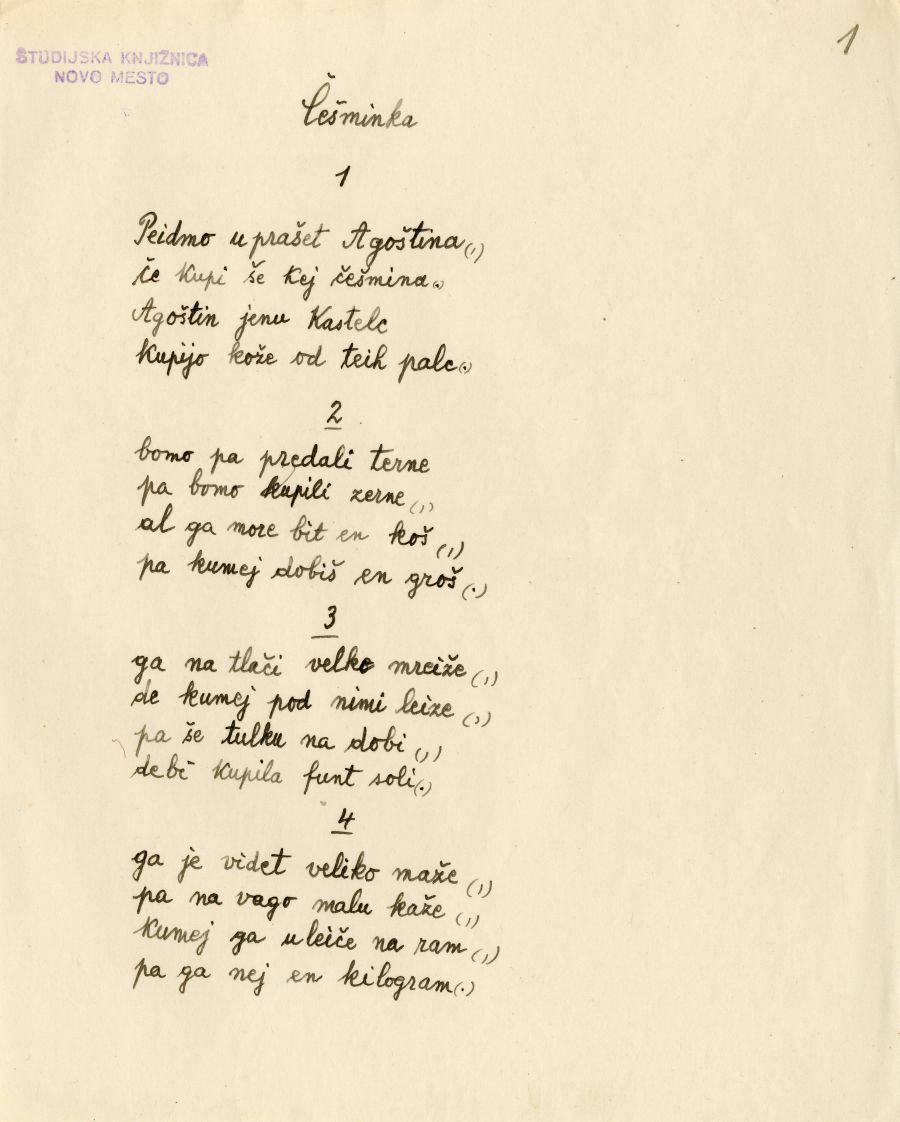 1
ŠTUDIJSKA KNJIŽNICA
NOVO MESTO
Češminka
1
Peidmo uprašet Agoština(,)
če kupi še kej češmina(.)
Agoštin jenu Kastelc
kupijo kože od teih palc(.)
2
bomo pa predali terne
pa bomo kupili zerne(,)
al ga more bit en koš(,)
pa kumej dobiš en groš(.)
3
ga na tlači velke mreiže(,)
de kumej pod nimi leize(,)
pa še tulku na dobi(,)
debi kupila funt soli(.)
4
ga je videt veliko maže(,)
pa na vago malu kaže(,)
kumej ga uleiče na ram(,)
pa ga nej en kilogram(.)